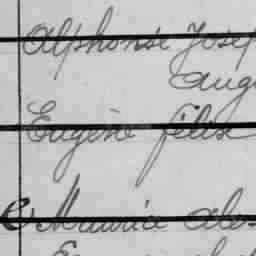 Alphonse Josep
Augu
Eugène Félix
Maurice Alex